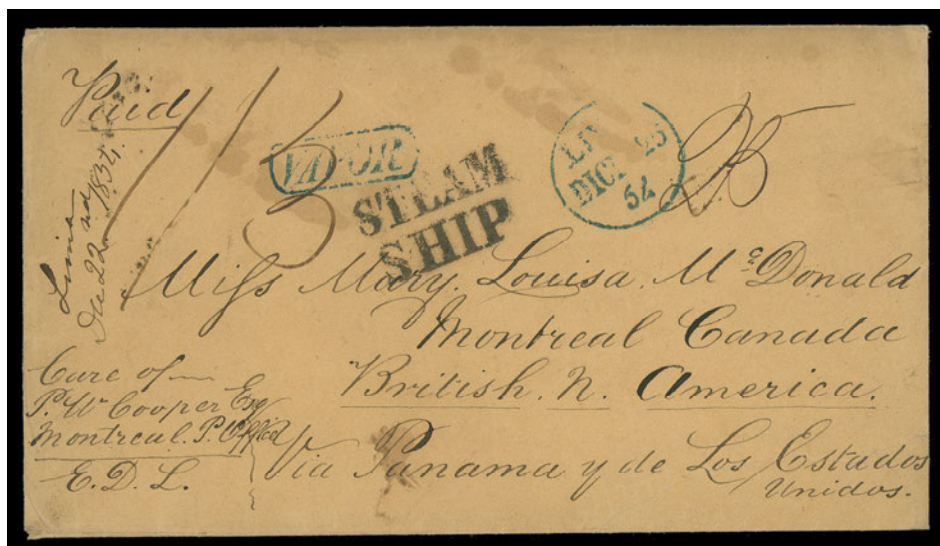 Paid
Lima
Dec 22nd 1854.
1/3
VAPOR
STEAM
SHIP
DICE 25
54
Miss Mary Louisa McDonald
Montreal Canada
British. N. America.
Care of
P. W Cooper Esq
Montreal. P. Office
E. D. L.
Via Panama y de Los Estados
Unidos.